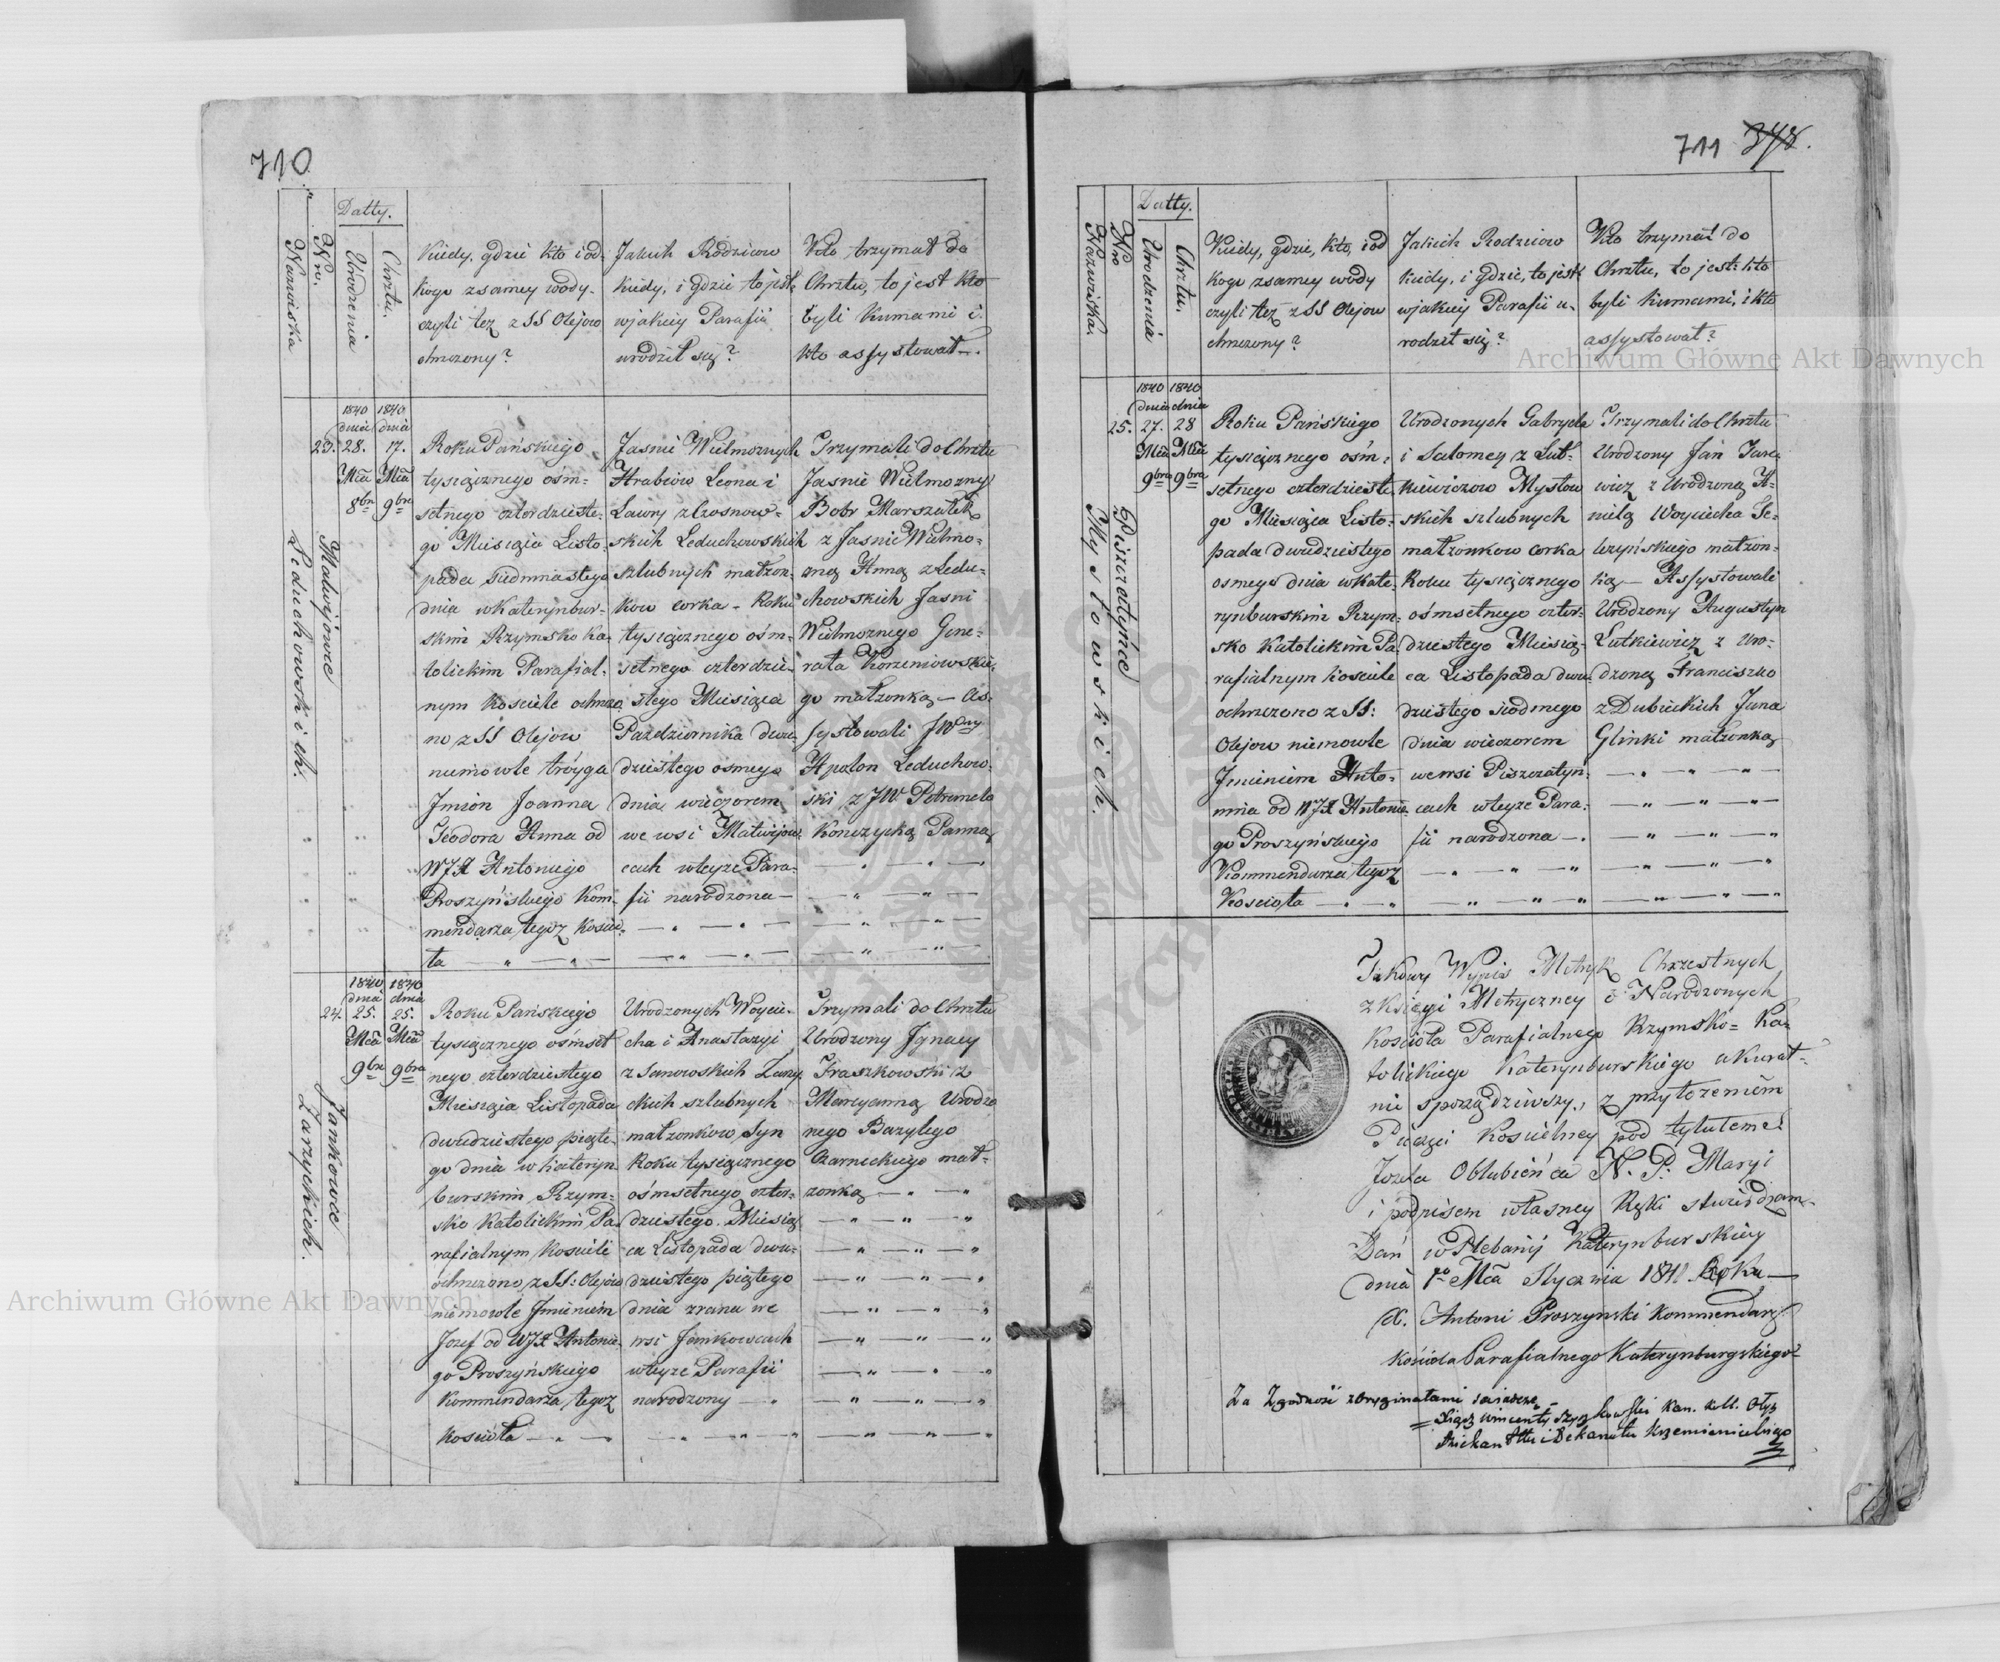 710
Datty.
Nazwiska
Nro.
Urodzenia
Chrztu.
Kiedy, gdzie kto i od
kogo z samey wody
czyli też z SS Olejow
chrzczony?
Jakich Rodzicow
kiedy, i gdzie to jest
w jakiey Parafii
urodził się?
Kto trzymał do
Chrztu, to jest kto
byli Kumami i
kto assystował.
Matwijowce
Leduchowskich.
23.
1840
dnia
28.
Mca
8bra
1840
dnia
17.
Mca
9bra
Roku Pańskiego
tysiącznego ośm-
setnego czterdzieste-
go Miesiąca Listo-
pada siedmnastego
dnia w Katerynbur-
skim Rzymsko Ka-
tolickim Parafial-
nym Kosciele ochrzczo-
no z SS Olejow
niemowle tróyga
Imion Joanna
Teodora Anna od
WJX Antoniego
Proszyńskiego Kom-
mendarza tegoż Koscio-
ła
Jasnie Wielmoznych
Hrabiow Leona i
Laury z Czosnow-
skich Leduchowskich
szlubnych małzon-
kow corka - Roku
tysiącznego ośm-
setnego czterdzie-
stego Miesiąca
Pazdziernika dwu-
dziestego osmego
dnia wieczorem
we wsi Matwijow-
cach w teyze Para-
fii narodzona
Trzymali do Chrztu
Jasnie Wielmozny
Bobr Marszałek
z Jasnie Wielmo-
zną Anną z Ledu-
chowskich Jasni
Wielmoznego Gene-
rała Korzeniowskie-
go małzonką - As-
systowali JWny
Apolon Leduchow-
ski z JW Petronelą
Konczycką Panną
Jankowce
Zarzyckich.
24.
1840
dnia
25.
Mca
9bra
1840
dnia
25.
Mca
9bra
Roku Pańskiego
tysiącznego ośmset
nego czterdziestego
Miesiąca Listopada
dwudziestego piąte-
go dnia w Kateryn
burskim Rzym-
sko Katolickim Pa-
rafialnym Kosciele
ochrzczono z SS: Olejow
niemowle Imieniem
Jozef od WJX Antonie-
go Proszyńskiego
Kommendarza tegoż
Koscioła
Urodzonych Woycie-
cha i Anastazyi
z Janowskich Zarzy
ckich szlubnych
matzonkow Syn
Roku tysiącznego
ośmsetnego czter-
dziestego Miesią
ca Listopada dwu-
dziestego piątego
dnia zrana we
wsi Jankowcach
w teyze Parafii
narodzony
Trzymali do Chrztu
Urodzony Ignacy
Iraszkowski z
Maryanną Urodzo
nego Bazylego
Czarneckiego mał-
zonką
711 378.
Datty.
Nazwiska.
Nro
Urodzenia
Chrztu.
Kiedy, gdzie, kto, i od
kogo z samey wody
czyli też z SS Olejow
chrzczony?
Jakich Rodzicow
kiedy, i gdzie, to jest
w jakiey Parafii u-
rodził się?
Kto trzymał do
Chrztu, to jest: kto
byli Kumami, i kto
assystował?
Piszczatyńce
Mysłowskich.
25.
1840
dnia
27.
Mca
9bra
1840
dnia
28
Mca
9bra
Roku Pańskiego
tysiącznego ośm-
setnego czterdzieste-
go Miesiąca Listo-
pada dwudziestego
osmego dnia w Kate-
rynburskim Rzym-
sko Katolickim Pa-
rafialnym Kosciele
ochrzczono z SS:
Olejow niemowle
Imieniem Anto-
nina od WJX Antonie-
go Proszyńskiego
Kommendarza tegoż
Koscioła
Urodzonych Gabryela
i Salomey z Lut-
kiewiczow Mysłow
skich szlubnych
małzonkow corka
Roku tysiącznego
ośmsetnego czter-
dziestego Miesią-
ca Listopada dwu-
dziestego siodmego
dnia wieczorem
we wsi Piszczatyń-
cach w teyze Para-
fii narodzona
Trzymali do Chrztu
Urodzony Jan Jure-
wicz z Urodzoną A-
nielą Woyciecha Se-
czyńskiego małzon-
ką - Assystowali
Urodzony Augustyn
Lutkiewicz z Uro-
dzoną Franciszką
z Dubickich Jana
Glinki małzonką
Takowy Wypis Metryk Chrzestnych
z Księgi Metryczney o Narodzonych
Kościoła Parafialnego Rzymsko- Ka-
tolickiego Katerynburskiego akurat-
nie sporządziwszy, z przyłożeniem
Pieczęci Kościelney pod tytułem S
Jozefa Oblubieńca N. P. Maryi
i podpisem własney Ręki stwierdzam
Dań w Plebanij Katerynburskiey
dnia 1go Mca Stycznia 1841 Roku
X. Antoni Proszynski Kommendarz
Kościoła Parafialnego Katerynburgskiego
Za Zgodność z Oryginałami swiadczę
Xiądz Wincenty Kan. Koll. Ołyc
Dziekan i Dekanatu Krzemienieckiego
Archiwum Główne Akt Dawnych
Archiwum Główne Akt Dawnych